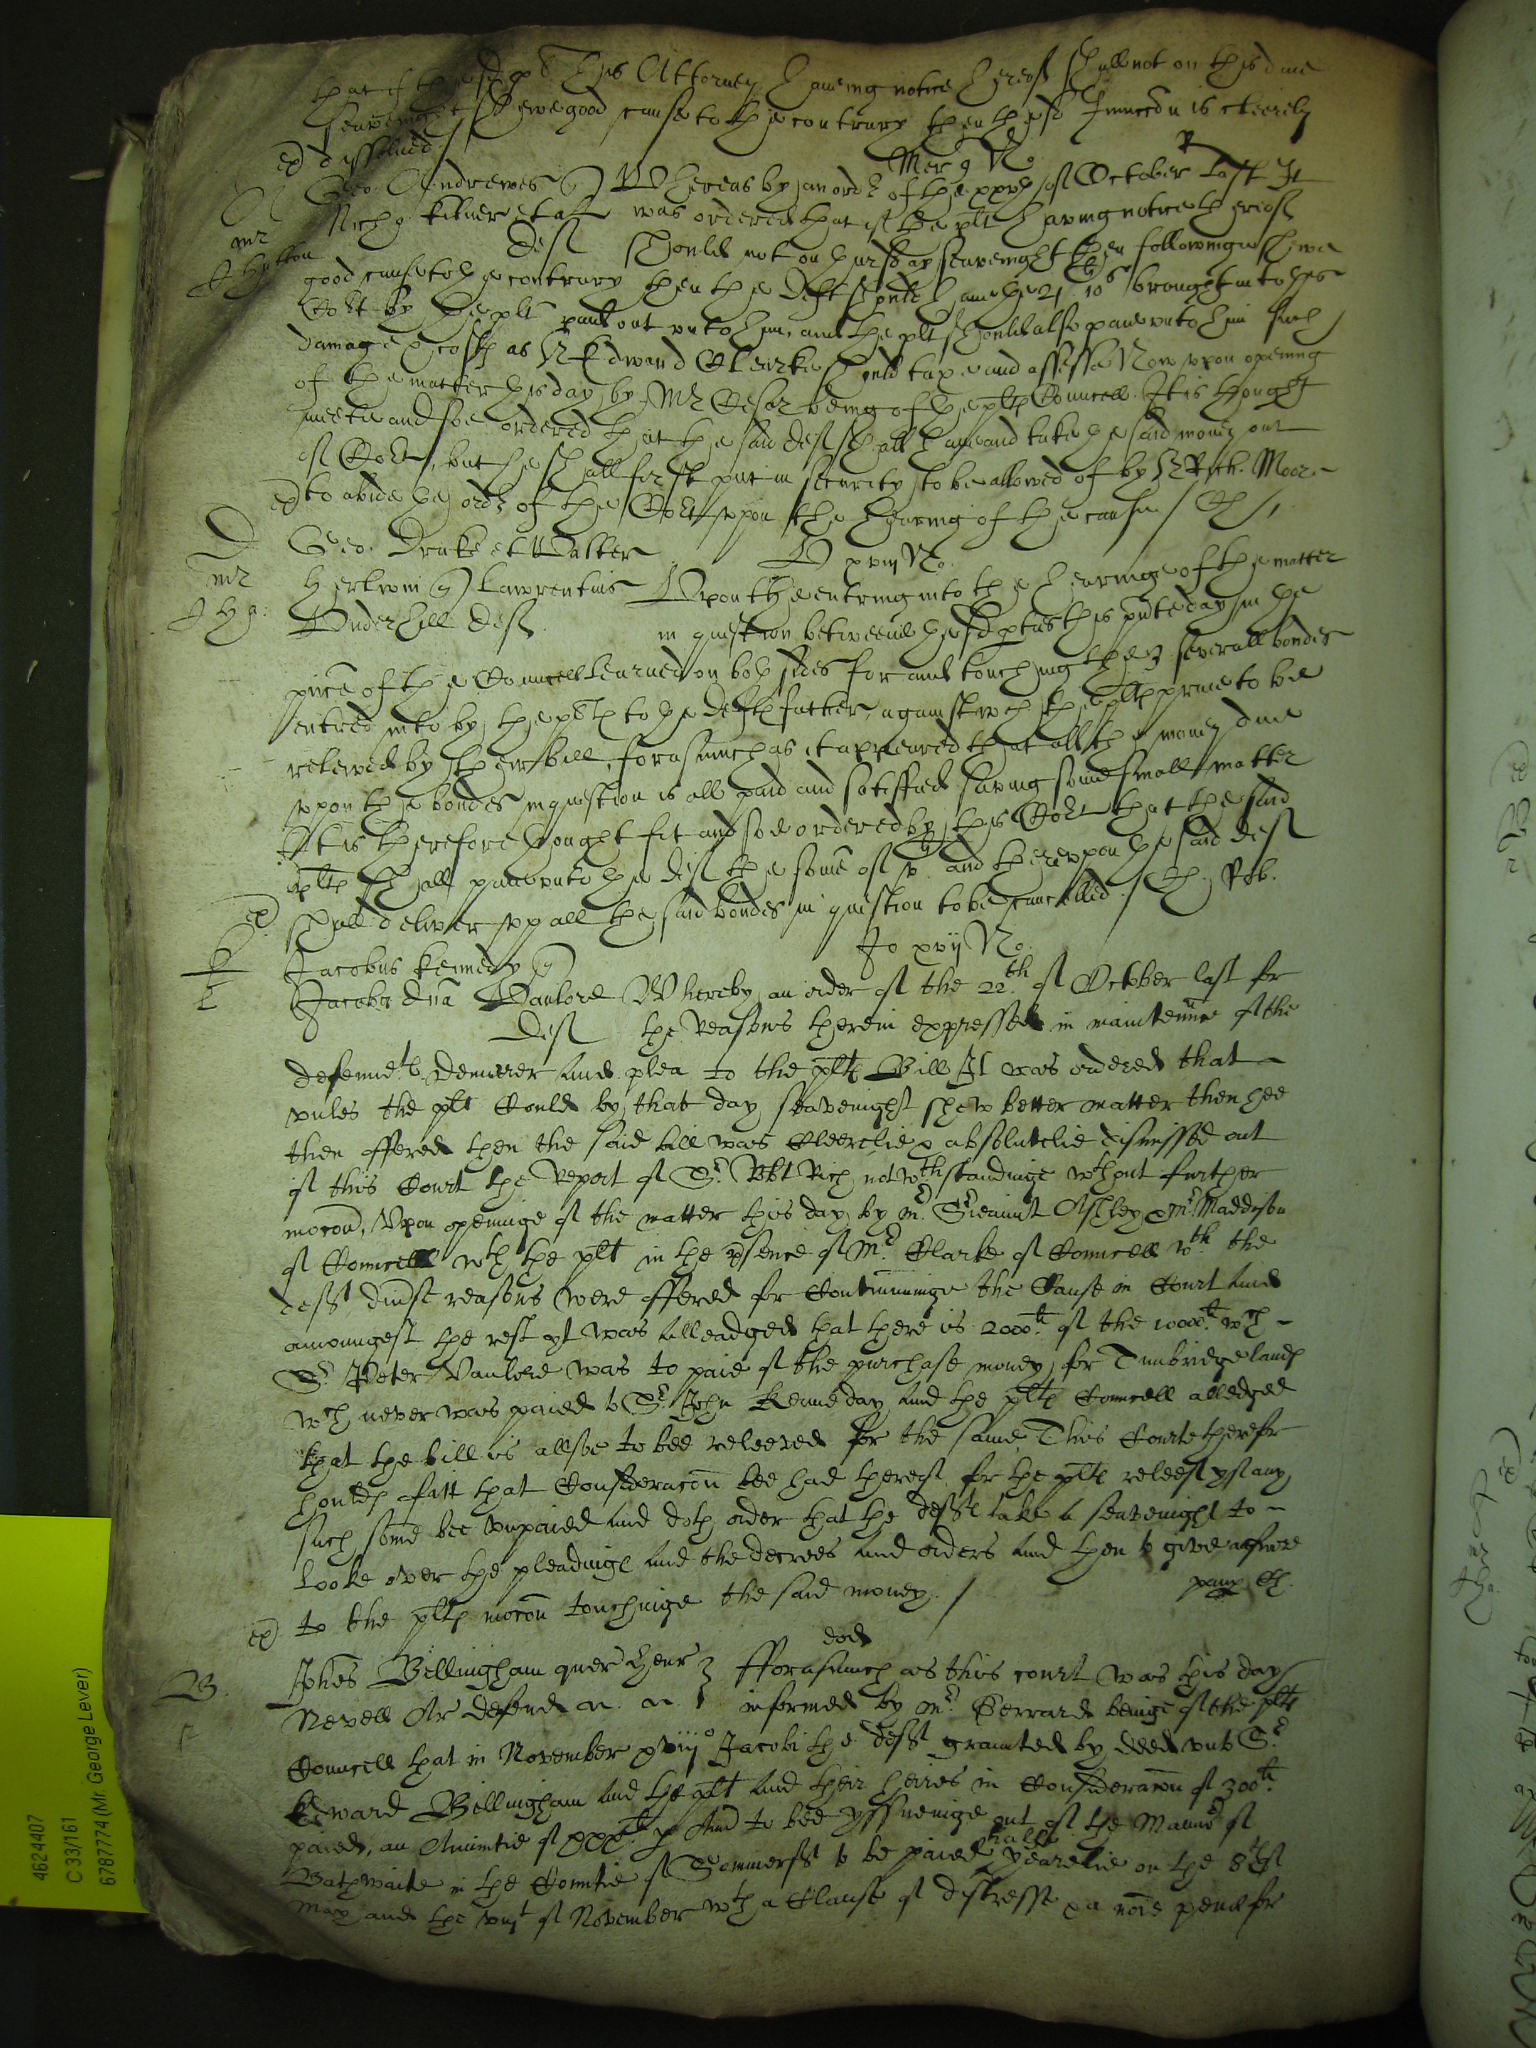 that if the said plt his Attorney haveing notice hereof shall not on this daie
seavenight shewe good cause to the contrary then the sd Iniuncc̄on is cleerely
ex dissolved
Mer 9 No
Geo: Andrewes q Whereas by an ordr of the xxvth of October last It
Nich9 Kilner et al was ordered that if the plt having notice thereof
mr
deft should not on thursday seavenight then following shewe
good cause to the contrary then the deft should have the 21li 10s brought into this
Cort by the plt paid out unto him, and the plt should also paie unto him such
damage & costs as Sr Edward Clerke should taxe and assesse Now upon opening
of the matter this day by Mr Cesar being of the plts Councell It is thought
meete and soe ordered that the said deft shall have and take the said money out
of Cort, but he shall first put in security to be allowed of by Sr Rich. Moore
ex to abide the ordr of the Cort upon the hearing of the cause /
D Geo. Drake et Walter
xviij No.
mr Herlwin q Lawrentius Upon the entring into the hearinge of the matter
Underhill deft in question betweene the sd pties this pnte day in the
pnce of the Councell learned on both sides for and touching the 3 severall bondes
entred into by the plts to the defts father, against wch the plts praie to be
releived by their bill, forasmuch as it appeared that all the money due
uppon the bondes in question is all paid and satisfied saving some small matter
It is therefore thought fit and soe ordered by this Cort that the said
plts shall paie unto the deft the some of vli and thereuppon the said deft
ex shall deliver upp all the said bondes in question to be cancelled /
Jo xvij No.
K Jacobus Kennedy q
Jacoba dn̄a Vanlore Whereby an order of the 22th of October last for
Deft the reasons therein expressed in maintennce of the
defennts demurrer and plea to the plts Bill It was ordered that
unles the plt Could by that day seavenight shew better matter then hee
then offered then the said bill was Cleerelie & absolutelie dismissed out
of this Court the report of Sr Robt Rich notwthstandinge wthout further
moc̄on, Upon openinge of the matter this day by mr Srieaunt Ashley & Mr Maddison
of Councell wth the plt in the psence of Mr Clarke of Councell wth the
deft divse reasons were offered for Continuinge the Cause in Court and
amoungest the rest yt was alleadged that there is 2000li of the 10000li wch
Sr Peter Vanlore was to paie of the purchase money for Tunbridge lands
wch never was paied to Sr John Kenneday and the plts Councell alledged
that the bill is allsoe to bee releeved for the same, This Courte therefore
houlds fitt that Considerac̄on bee had thereof for the plts releefe yf any
such some bee unpaied and doth order that the deft take a seavenight to
looke over the pleadinge and the decrees and orders and then to give answere
ex to the plts moc̄on touchinge the said money. /
eod
B Johēs Bellingham quer Henr Forasmuch as this court was this day
Nevell Ar defend informed by mr Gerrard beinge of the plts
Councell that in November xviijo Jacobi the deft graunted by deed unto Sr
Edward Bellingham and the plt and their heires in Considerac̄on of 300li
paied, an Anuitie of xxxli p Ann to bee yssueinge out of the Mannor of
Bathwaite in the Countie of Sommersett to be paied halfe yearelie on the 8th of
May and the viijt of November wth a Clause of distresse & a noīe pene for
4624407
C 33/161
6787774 (Mr George Lever)